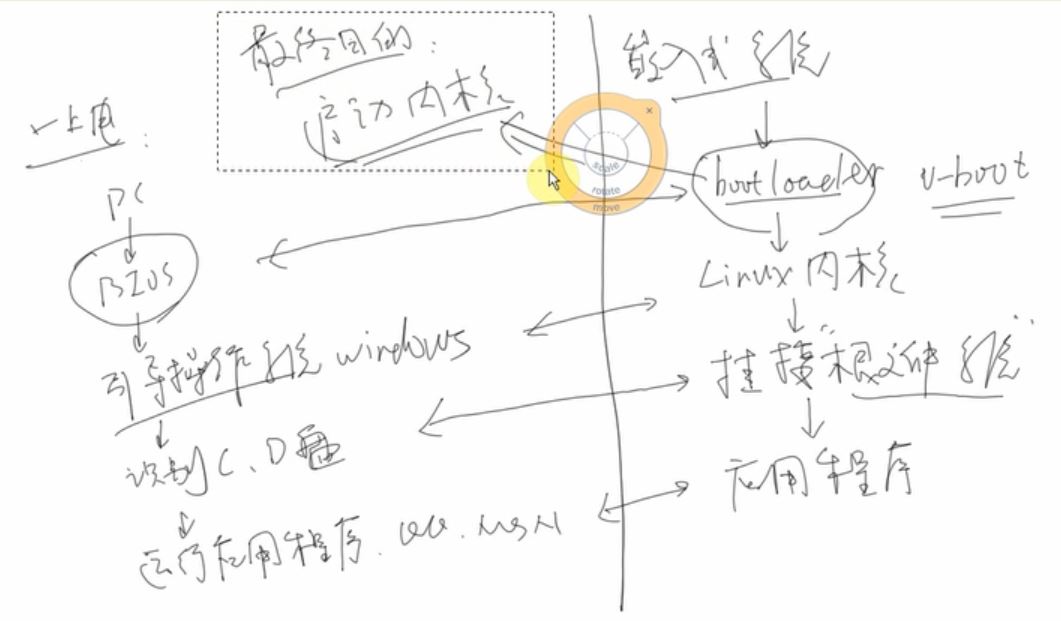 最终目的:
启动内核
一上电:
PC
BIOS
引导操作系统 windows
识别C、D盘
运行应用程序. QQ. MSN
嵌入式系统
bootloader
u-boot
Linux内核
挂接"根文件系统"
应用程序
scale
rotate
move